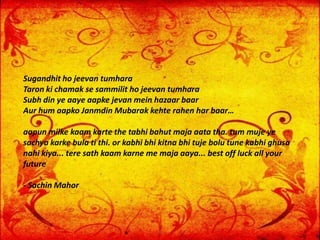 Sugandhit ho jeevan tumhara
Taron ki chamak se sammilit ho jeevan tumhara
Subh din ye aaye aapke jevan mein hazaar baar
Aur hum aapko Janmdin Mubarak kehte rahen har baar…
aapun milke kaam karte the tabhi bahut maja aata tha. tum muje ye
sachya karke bula ti thi. or kabhi bhi kitna bhi tuje bolu tune kabhi ghusa
nahi kiya... tere sath kaam karne me maja aaya... best off luck all your
future
- Sachin Mahor